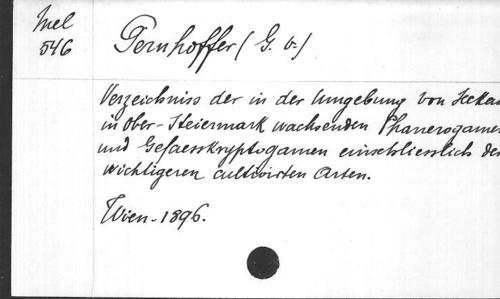 Mel
546
Pernhoffer (G. v.)
Verzeichniss der in der Umgebung von Seckau
in Ober-Steiermark wachsenden Phanerogamen
und Gefaesskryptogamen einschliesslich der
wichtigeren cultivirten Arten.
Wien-1896.